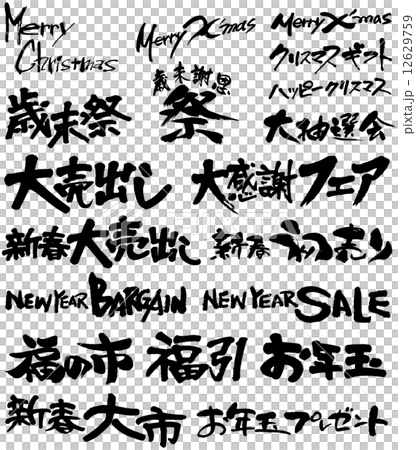 Merry Christmas
Merry X'mas
Merry X'mas
クリスマスギフト
ハッピークリスマス
歳末祭
歳末謝恩
祭
大抽選会
大売出し
大感謝フェア
新春大売出し
新春初売り
NEW YEAR BARGAIN
NEW YEAR SALE
福の市
福引
お年玉
新春大市
お年玉プレゼント
12629759